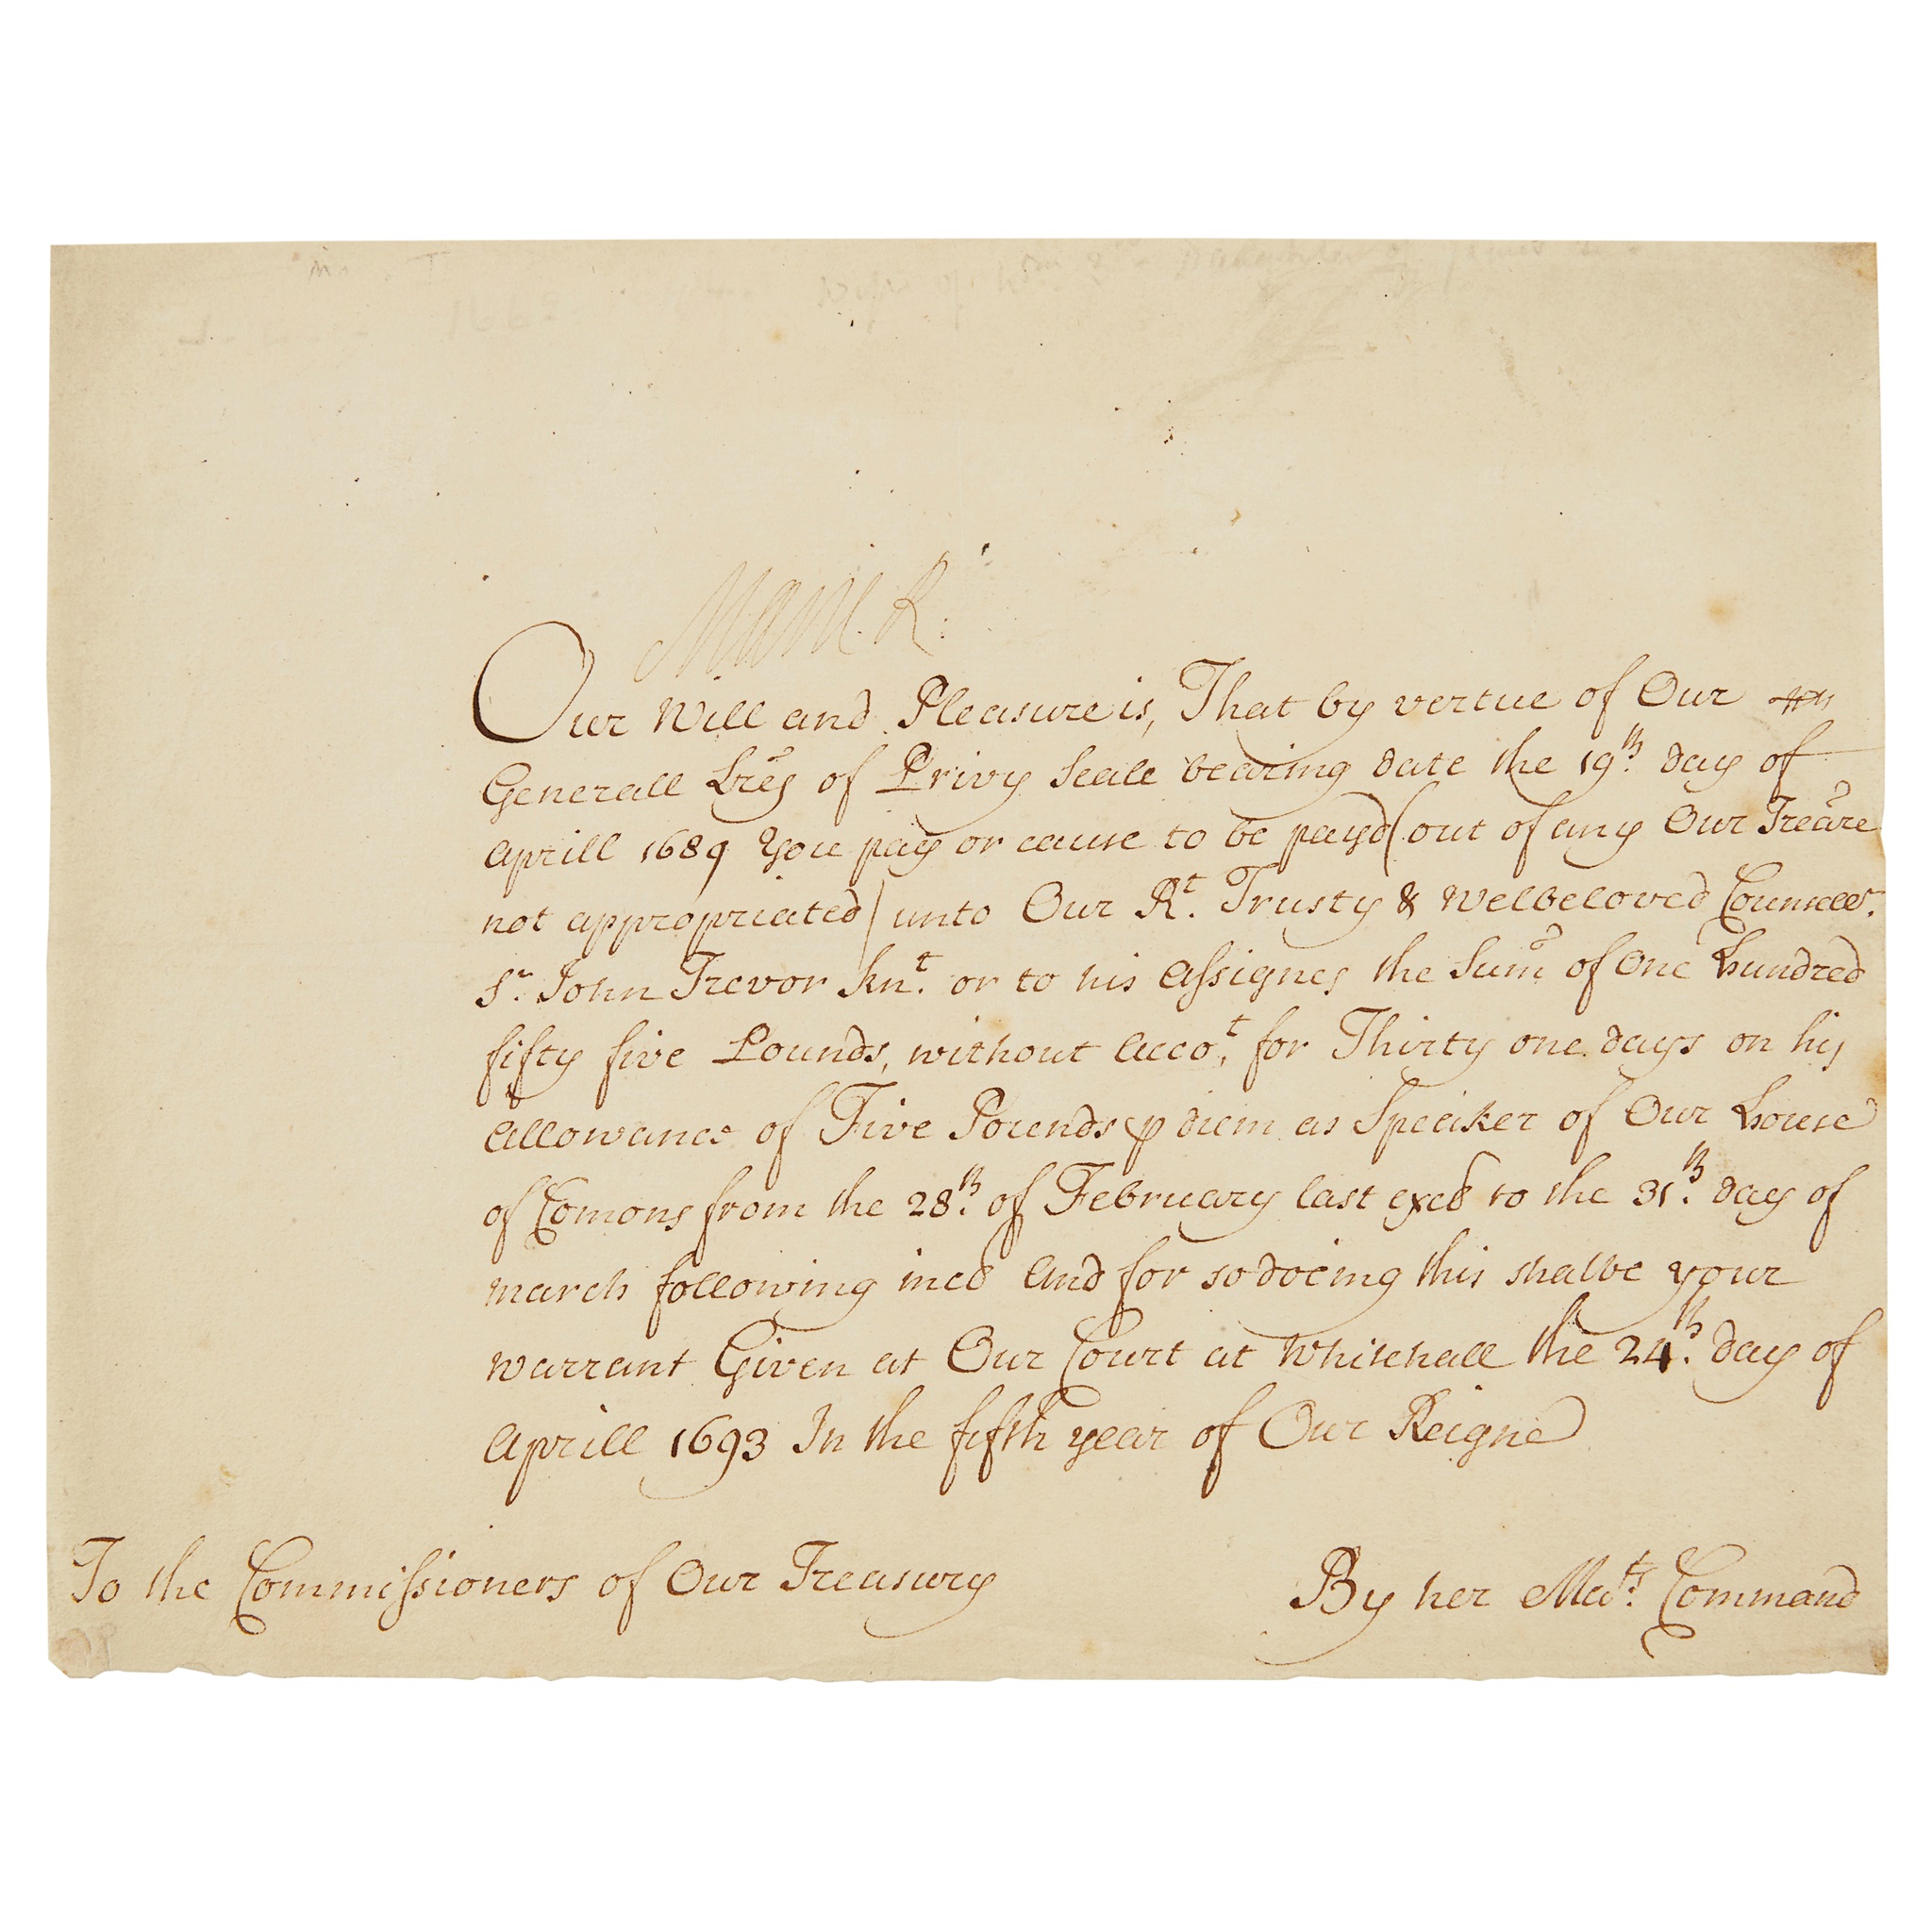 Marie R:
Our Will and Pleasure is, That by vertue of Our
Generall Lr̃es of Privy Seale bearing date the 19th. day of
Aprill 1689 You pay or cause to be payd (out of any Our Trẽare
not appropriated) unto Our Rt. Trusty & Welbeloved Councellr.
Sr. John Trevor Knt. or to his Assignes the Sum̃ of One Hundred
fifty five Pounds, without Accot. for Thirty one days on his
Allowance of Five Pounds p diem as Speaker of Our House
of Comons from the 28th. of February last excl to the 31th. day of
March following incl And for so doeing this shalbe your
Warrant Given at Our Court at Whitehall the 24th. day of
Aprill 1693 In the fifth year of Our Reigne
To the Commissioners of Our Treasury
By her Mats. Command